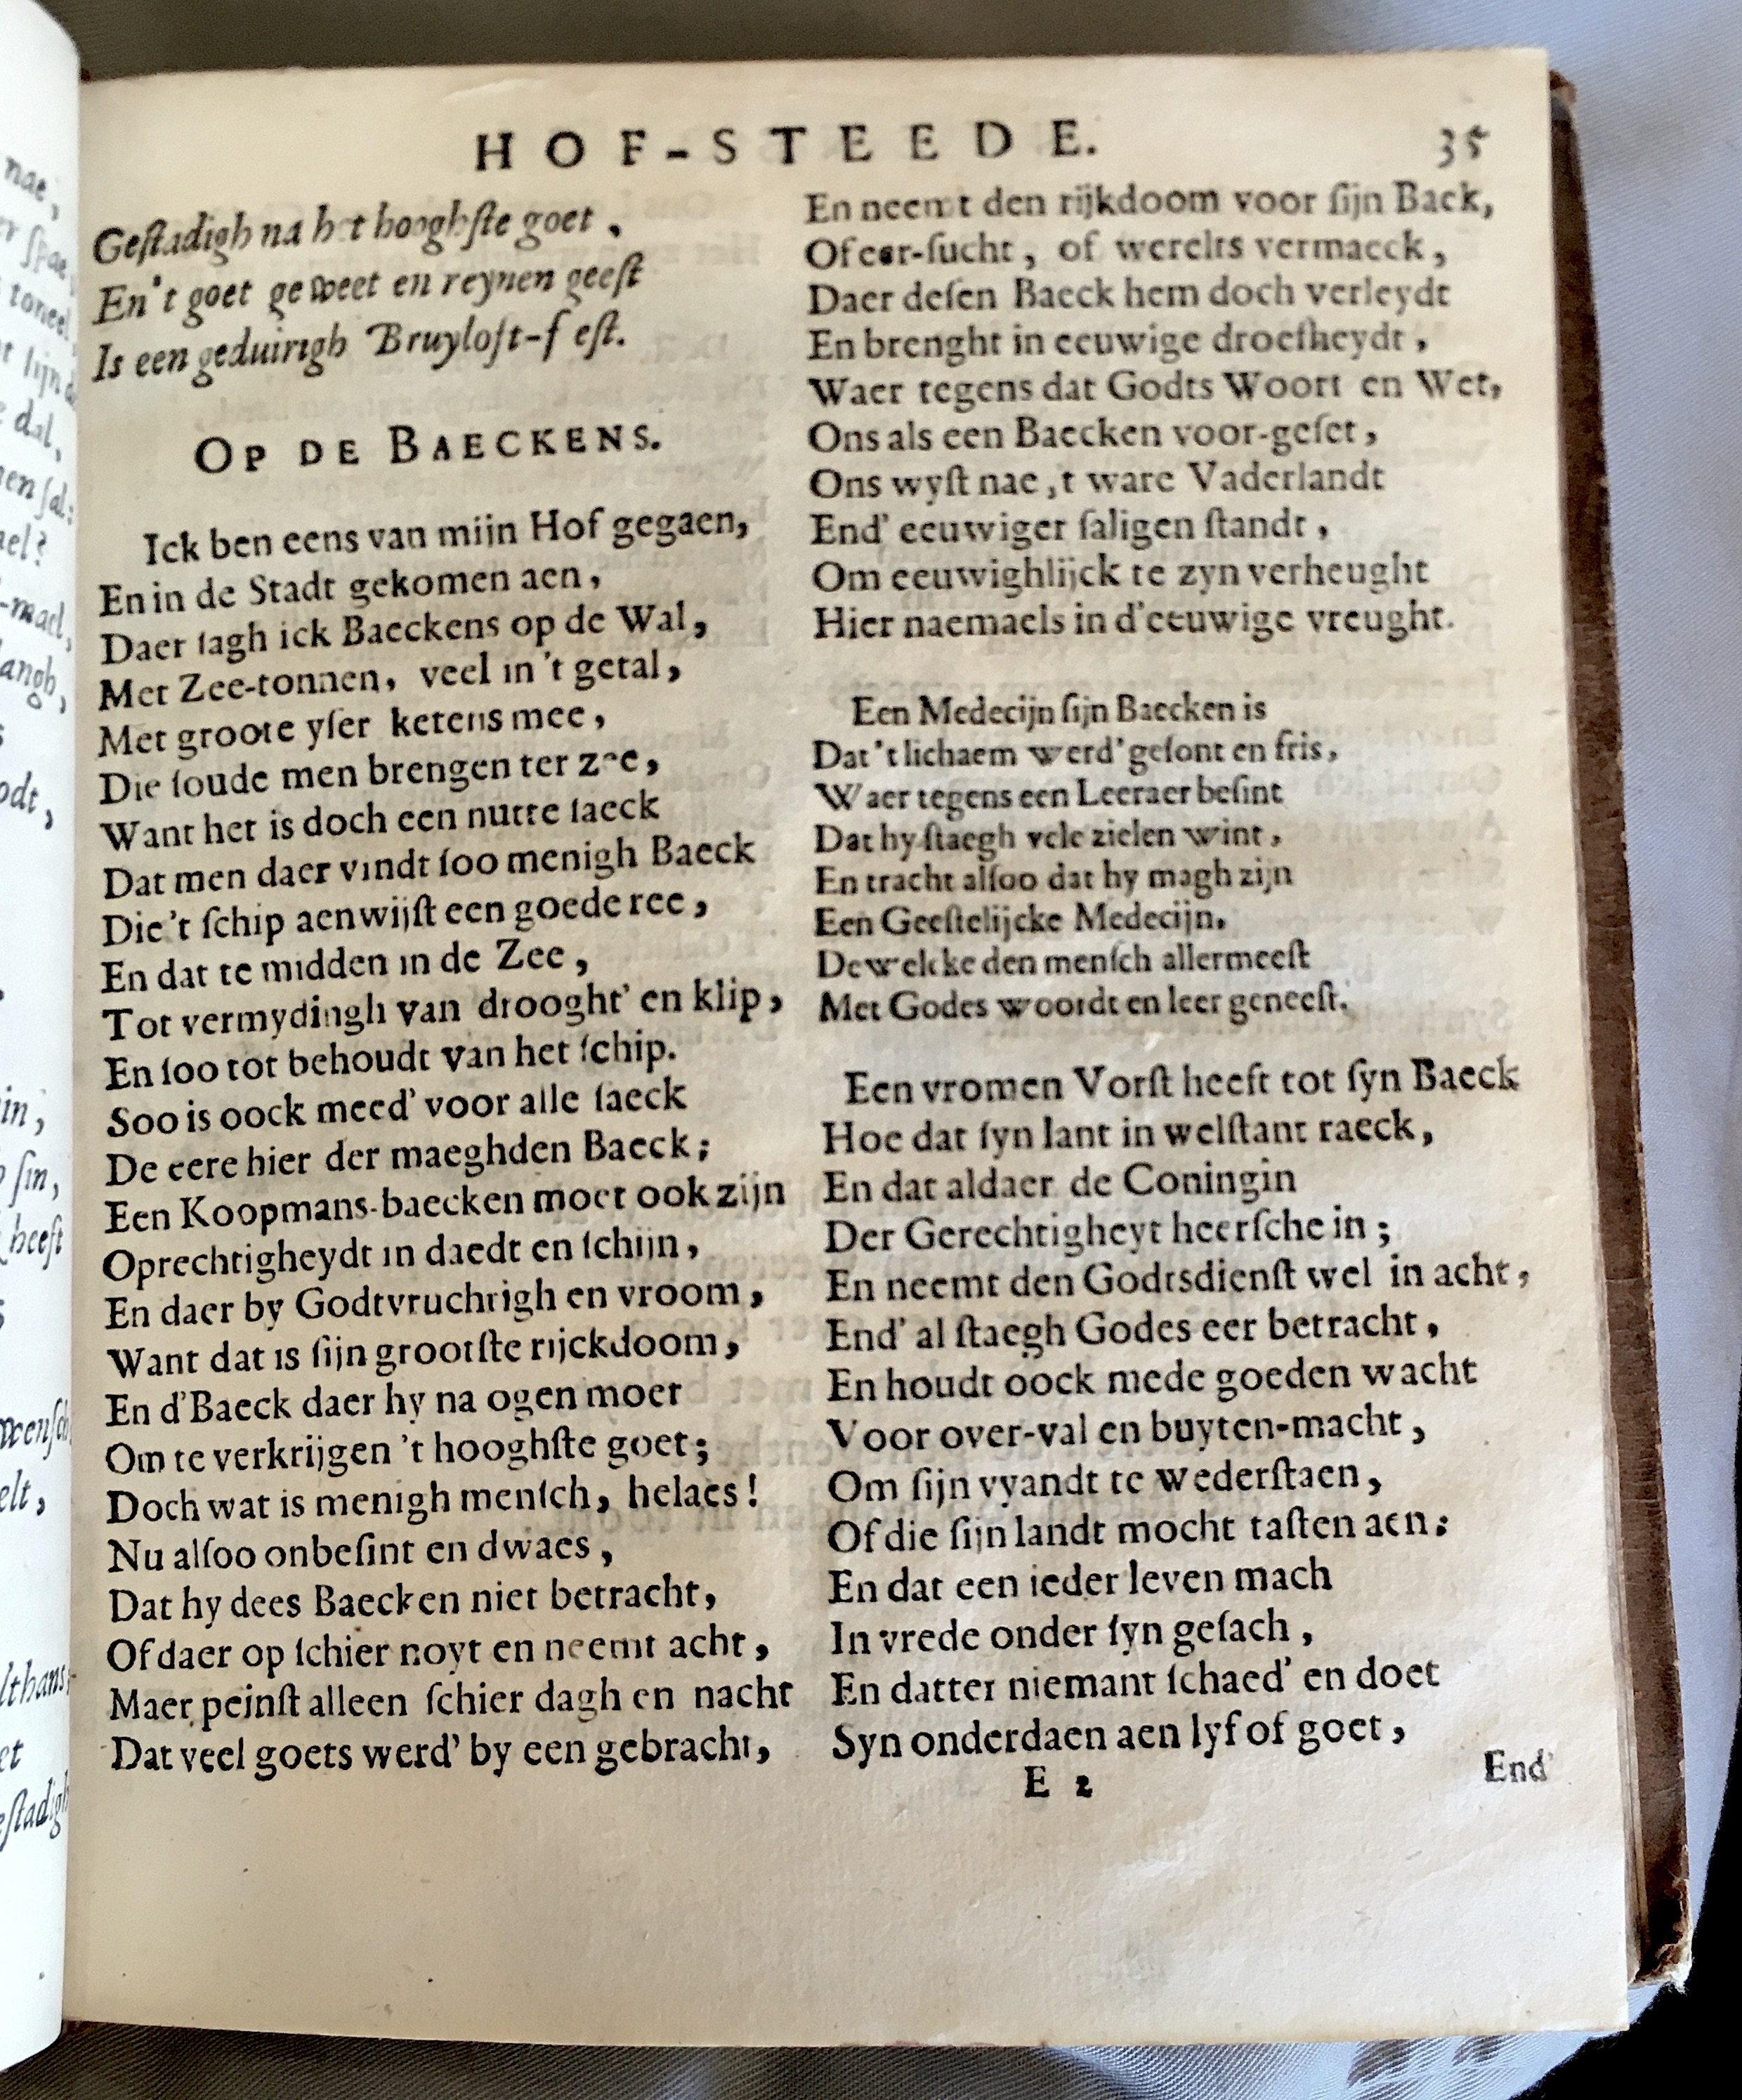 HOF-STEEDE. 35
Geſtadigh na het hooghſte goet,
En't goet geweet en reynen geeſt
Is een geduirigh Bruyloft-feſt.
OP DE BAECKENS.
Ick ben eens van mijn Hof gegaen,
En in de Stadt gekomen aen,
Daer ſagh ick Baeckens op de Wal,
Met Zee-tonnen, veel in 't getal,
Met groote yſer ketens mee,
Die ſoude men brengen ter zee,
Want het is doch een nutte ſaeck
Dat men daer vindt ſoo menigh Baeck
Die 't ſchip aenwijſt een goede ree,
En dat te midden in de Zee,
Tot vermydingh van drooght' en klip,
En ſoo tot behoudt van het ſchip.
Soo is oock meed' voor alle ſaeck
De eere hier der maeghden Baeck;
Een Koopmans-baecken moet ook zijn
Oprechtigheydt in daedt en ſchijn,
En daer by Godtvruchtigh en vroom,
Want dat is ſijn grootſte rijckdoom,
En d'Baeck daer hy na ogen moet
Om te verkrijgen 't hooghſte goet;
Doch wat is menigh menſch, helaes!
Nu alſoo onbeſint en dwaes,
Dat hy dees Baecken niet betracht,
Of daer op ſchier noyt en neemt acht,
Maer peinſt alleen ſchier dagh en nacht
Dat veel goets werd' by een gebracht,
En neemt den rijkdoom voor ſijn Back,
Of eer-ſucht, of werelts vermaeck,
Daer deſen Baeck hem doch verleydt
En brenght in eeuwige droefheydt,
Waer tegens dat Godts Woort en Wet,
Ons als een Baecken voor-geſet,
Ons wyſt nae ,t ware Vaderlandt
End' eeuwiger ſaligen ſtandt,
Om eeuwighlijck te zyn verheught
Hier naemaels in d'eeuwige vreught.
Een Medecijn ſijn Baecken is
Dat 't lichaem werd' geſont en fris,
Waer tegens een Leeraer beſint
Dat hy ſtaegh vele zielen wint,
En tracht alſoo dat hy magh zijn
Een Geeſtelijcke Medecijn.
Dewelcke den menſch allermeeſt
Met Godes woordt en leer geneeſt.
Een vromen Vorſt heeft tot ſyn Baeck
Hoe dat ſyn lant in welſtant raeck,
En dat aldaer de Coningin
Der Gerechtigheyt heerſche in;
En neemt den Godtsdienſt wel in acht,
End' al ſtaegh Godes eer betracht,
En houdt oock mede goeden wacht
Voor over-val en buyten-macht,
Om ſijn vyandt te wederſtaen,
Of die ſijn landt mocht taſten aen:
En dat een ieder leven mach
In vrede onder ſyn geſach,
En datter niemant ſchaed' en doet
Syn onderdaen aen lyf of goet,
E 2 End'